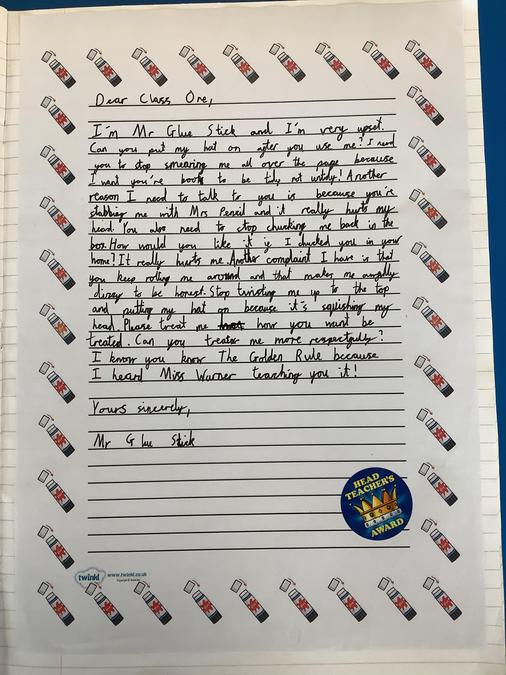 Dear Class One,
I'm Mr Glue Stick and I'm very upset.
Can you put my hat on after you use me? I need
you to stop smearing me all over the page because
I want you're books to be tidy not untidy! Another
reason I need to talk to you is because you're
stabbing me with Mrs Pencil and it really hurts my
head. You also need to stop chucking me back in the
box. How would you like it if I chucked you in your
home? It really hurts me. Another complaint I have is that
you keep rolling me around and that makes me
dizzy to be honest. Stop twisting me up to the top
and putting my hat on because it's squishing my
head. Please treat me how you want be
treated. Can you treat me more respectfully?
I know you know The Golden Rule because
I heard Miss Warner teaching you it!
Yours sincerely,
Mr Glue Stick
HEAD
TEACHER'S
AWARD
twinkl www.twinkl.co.uk